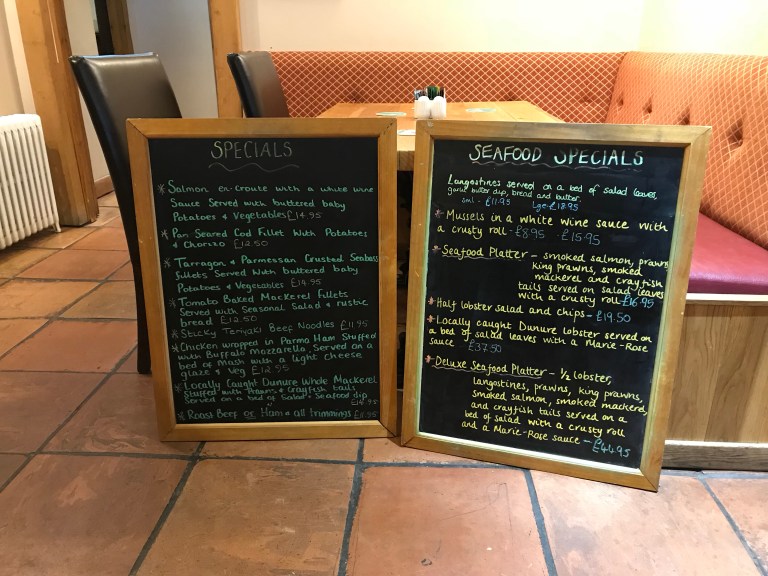 SPECIALS
* Salmon en-Croute with a white wine
Sauce Served with buttered baby
Potatoes & Vegetables £14.95
* Pan Seared Cod Fillet With Potatoes
& Chorizo £12.50
* Tarragon & Parmessan Crusted Seabass
fillets Served With buttered baby
Potatoes & Vegetables £14.95
* Tomato Baked Mackerel Fillets
Served with Seasonal Salad & rustic
bread £12.50
* Sticky Teriyaki Beef Noodles £11.95
* Chicken wrapped in Parma Ham Stuffed
with Buffalo Mozzarella, Served on a
bed of Mash with a light cheese
glaze & Veg £12.95
* Locally Caught Dunure Whole Mackerel
Stuffed with Prawns & Crayfish tails
Served on a bed of Salad & Seafood dip
£14.95
* Roast Beef or Ham & all trimmings £11.95
SEAFOOD SPECIALS
Langostines served on a bed of salad leaves,
garlic butter dip, bread and butter.
Sml - £11.95 Lge - £18.95
* Mussels in a white wine sauce with
a crusty roll - £8.95 - £15.95
* Seafood Platter - smoked salmon, prawns
king prawns, smoked
mackerel and crayfish
tails served on salad leaves
with a crusty roll - £16.95
* Half lobster salad and chips - £19.50
* Locally caught Dunure lobster served on
a bed of salad leaves with a Marie-Rose
sauce £37.50
* Deluxe Seafood Platter - ½ lobster,
langostines, prawns, king prawns,
smoked salmon, smoked mackerel,
and crayfish tails served on a
bed of salad with a crusty roll
and a Marie-Rose sauce - £44.95